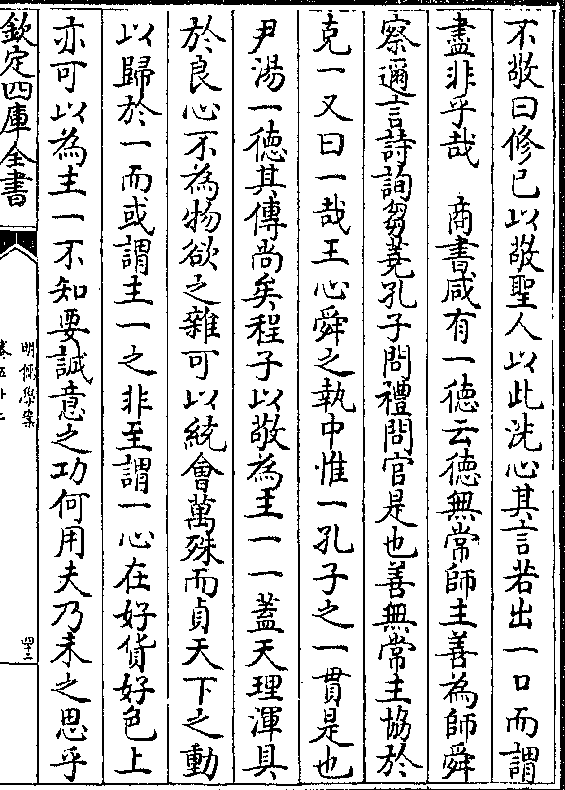 不敬曰修已以敬聖人以此洗心其言若出一口而謂
盡非乎哉　商書咸有一德云德無常師主善為師舜
察邇言詩詢芻蕘孔子問禮問官是也善無常主協於
克一又曰一哉王心舜之執中惟一孔子之一貫是也
尹湯一德其傳尚矣程子以敬為主一一蓋天理渾具
於良心不為物欲之雜可以統會萬殊而貞天下之動
以歸於一而或謂主一之非至謂一心在好貨好色上
亦可以為主一不知要誠意之功何用夫乃未之思乎
欽定四庫全書
明儒學案
卷五十二